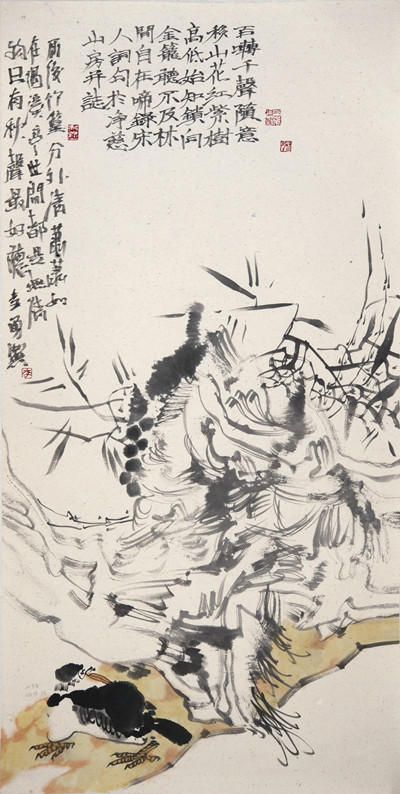 百囀千聲隨意
移山花紅紫樹
高低始知鎖向
金籠聽不及林
間自在啼錄宋
人詞句於净慈
山房并誌
雨後修篁分外清蕭蕭如
在過溪亭世間都是無情
物只有秋聲最好聽